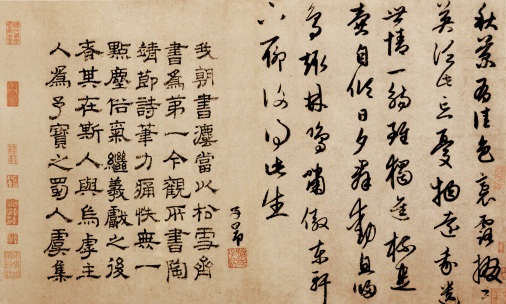 秋菊有佳色裛露掇其
英泛此忘憂物遠我遺
世情一觴雖獨進杯盡
壺自傾日夕群動息歸
鳥趨林鳴嘯傲東軒
下聊復得此生
子昂
我朝書廛當以松雪齋
書為第一今觀所書陶
靖節詩筆力痛快無一
點塵俗氣繼羲獻之後
者其在斯人與烏虖主
人為予寶之蜀人虞集